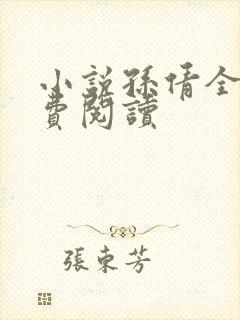 小說孫倩全
費閱讀
張東芳